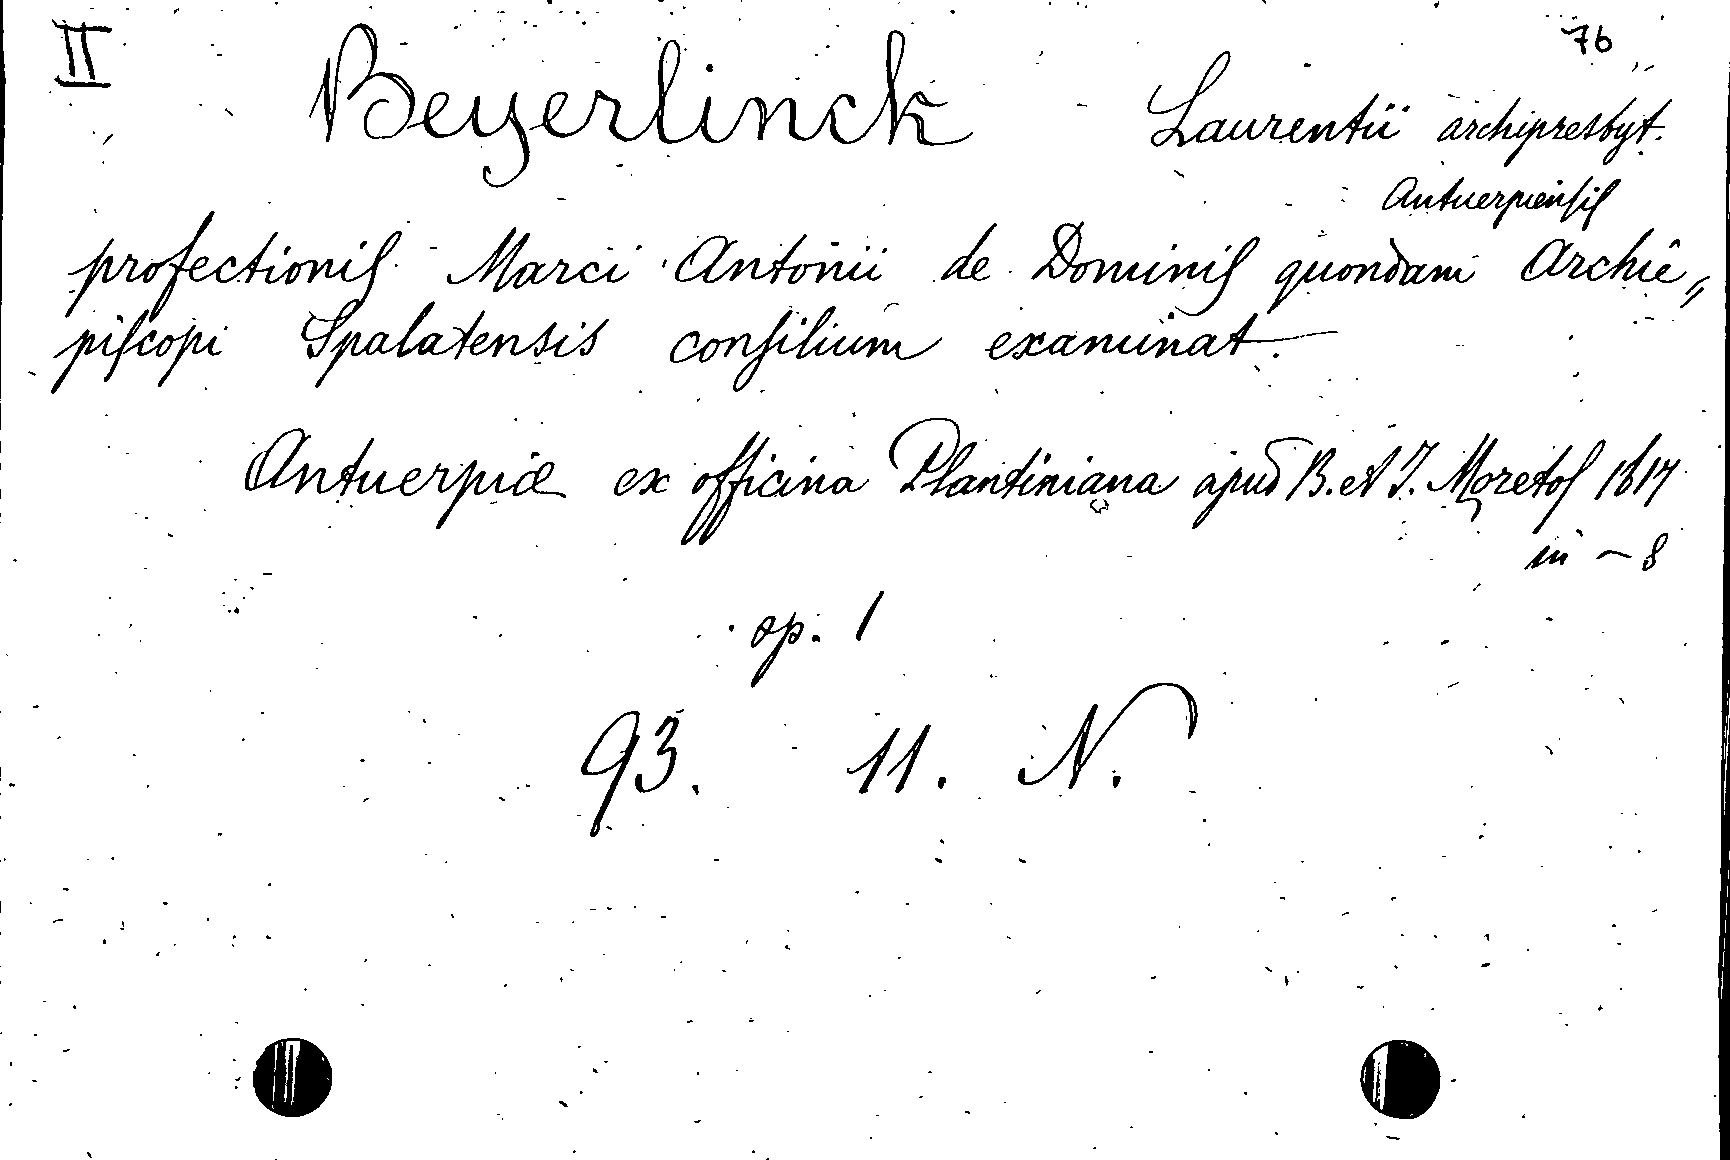 II
76
Beyerlinck Laurentii archipresbyt.
Antuerpiensis
profectionis Marci Antonii de Dominis quondam Archie„
piscopi Spalatensis consilium examinat.
Antuerpiæ ex officina Plantiniana apud B. et I. Moretos 1617
in - 8
op. 1
93. 11. N.